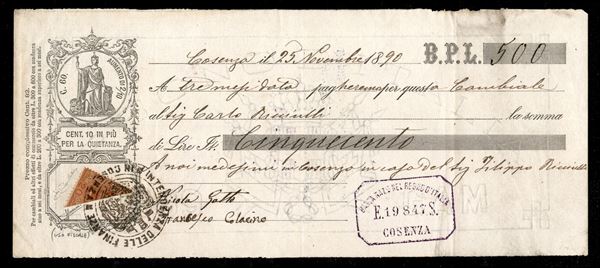 Cosenza il 25 Novembre 1890 B.P.L. 500
A tre mesi data pagheremo per questa Cambiale
al Sig Carlo Ricciulli la somma
di Lire It. Cinquecento
A noi medesimi in Cosenza in casa del Sig Filippo Ricciulli
Francesco
C. 60.
AUMENTO DI 2/10
CENT. 10 IN PIÙ
PER LA QUIETANZA.
Prezzo complessivo Cent. 82.
INTENDENZA DELLE FINANZE
COSENZA
(USO FISCALE)
BANCA NAZ. DEL REGNO D'ITALIA
E. 19847 S.
COSENZA